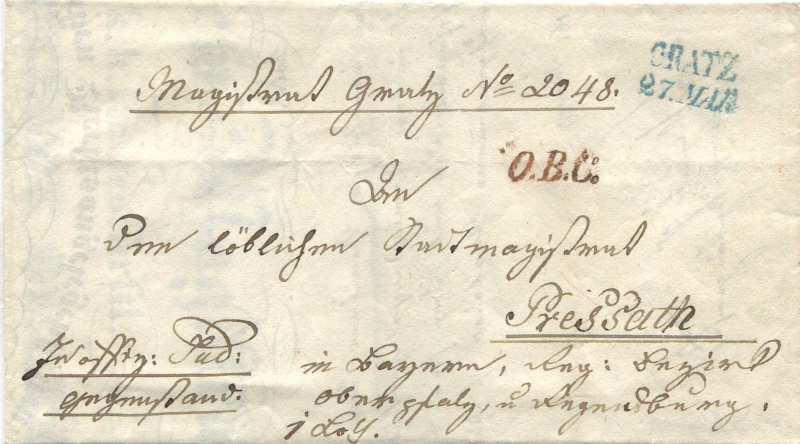 GRATZ
27. MAR
Magistrat Gratz No 2048.
O.B.C.
An
Den löblichen Stadtmagistrat
Pressath
in Bayern, Reg: Bezirk
Oberpfalz, u Regensburg.
gegenstand.
1 Loth.